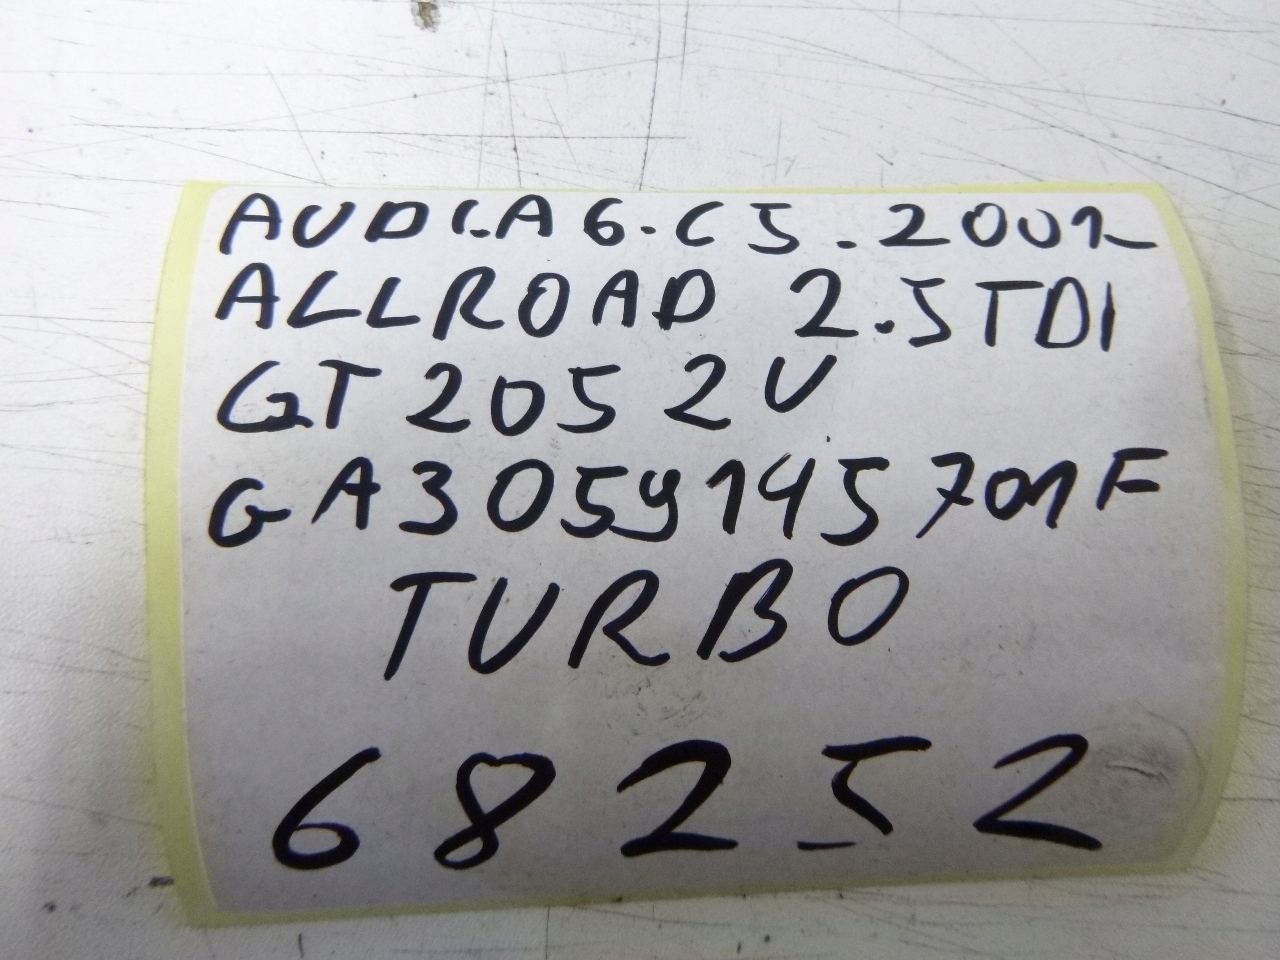 AUDI.A6.C5.2002
ALLROAD 2.5TDI
GT2052V
GA3059145701F
TURBO
68252